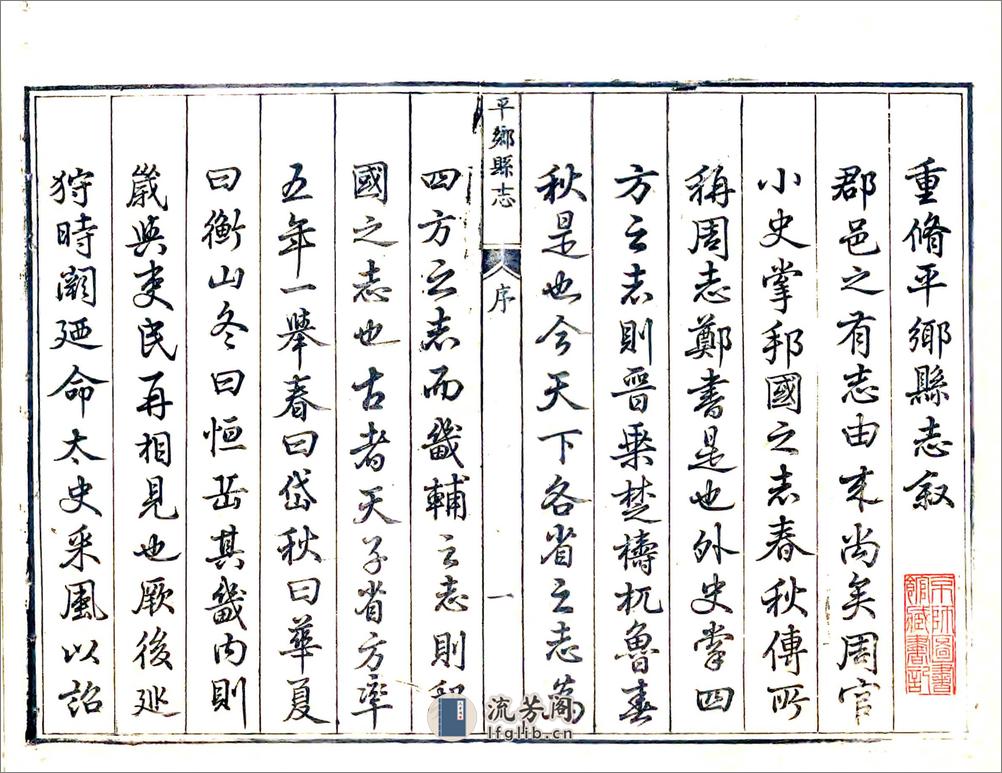 重脩平鄉縣志叙
郡邑之有志由来尚矣周官
小史掌邦國之志春秋傳所
稱周志鄭書是也外史掌四
方之志則晉乘楚檮杌魯春
秋是也今天下各省之志
平鄉縣志
序
一
四方之志而畿輔之志則
國之志也古者天子省方率
五年一舉春曰岱秋曰華夏
曰衡山冬曰恒岳其畿内則
歲與吏民再相見也厥後廵
狩時闕廼命太史采風以詔
京師圖書
館藏書記
流芳阁
lfglib.cn